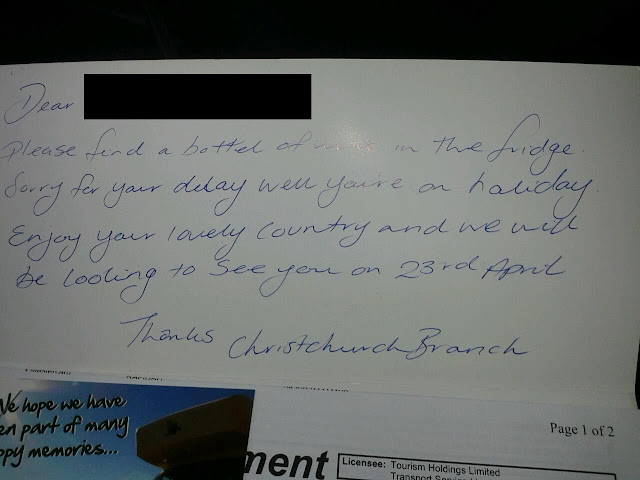 Dear
Please find a bottel of wine in the fridge.
Sorry for your delay well you're on holiday.
Enjoy your lovely Country and we will
be looking to see you on 23rd April
Thanks Christchurch Branch
We hope we have
en part of many
ppy memories...
Page 1 of 2
ment
Licensee: Tourism Holdings Limited